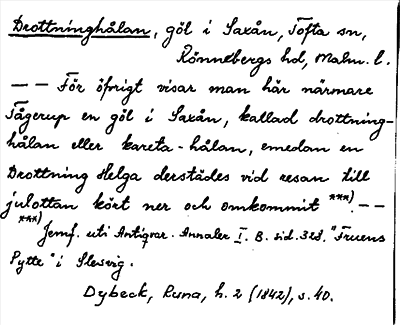 Drottninghålan, göl i Saxån, Tofta sn,
Rönnebergs hd, Malm. l.
— — För öfrigt visar man här närmare
Tågerup en göl i Saxån, kallad drottning-
hålan eller kareta-hålan, emedan en
Drottning Helga derstädes vid resan till
julottan kört ner och omkommit ***). — —
***) Jemf. uti Antiqvar. Annaler I. B. sid. 328. "Fruens
Pytte" i Slesvig.
Dybeck, Runa, h. 2 (1842), s. 40.